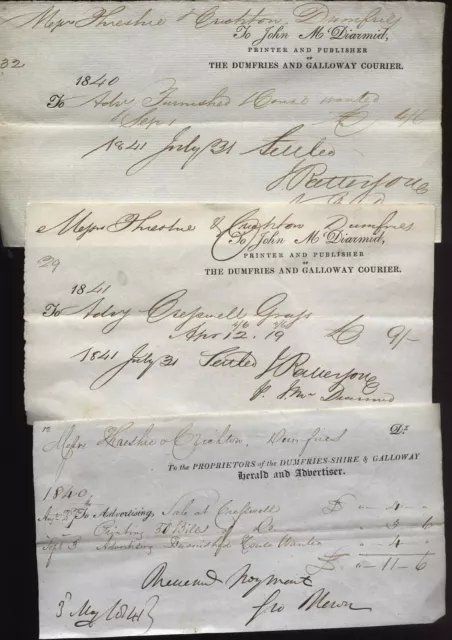 Messrs Threshie & Crichton, Dumfries
To John McDiarmid,
PRINTER AND PUBLISHER
OF
THE DUMFRIES AND GALLOWAY COURIER.
32
1840
To Advg Furnished House wanted
Sept £ 4/6
1841 July 31 Settled
J Patterson
Messrs Threshie & Crichton Dumfries
To John McDiarmid,
PRINTER AND PUBLISHER
OF
THE DUMFRIES AND GALLOWAY COURIER.
29
1841
To Advg Cresswell Grass
Apr 12. 19 £ 9/-
1841 July 31 Settled J Patterson
p. J. Mc Diarmid
Messrs Threshie & Crichton, Dumfries Dr
To the PROPRIETORS of the DUMFRIES-SHIRE & GALLOWAY
Herald and Advertiser.
1840
To Advertising, Sale at Cresswell £ " 4 "
Printing Bills of Do " 3 6
Sept 3 Advertising Furnished House Wanted " 4 "
£ " 11 " 6
Received payment
3d May 1841